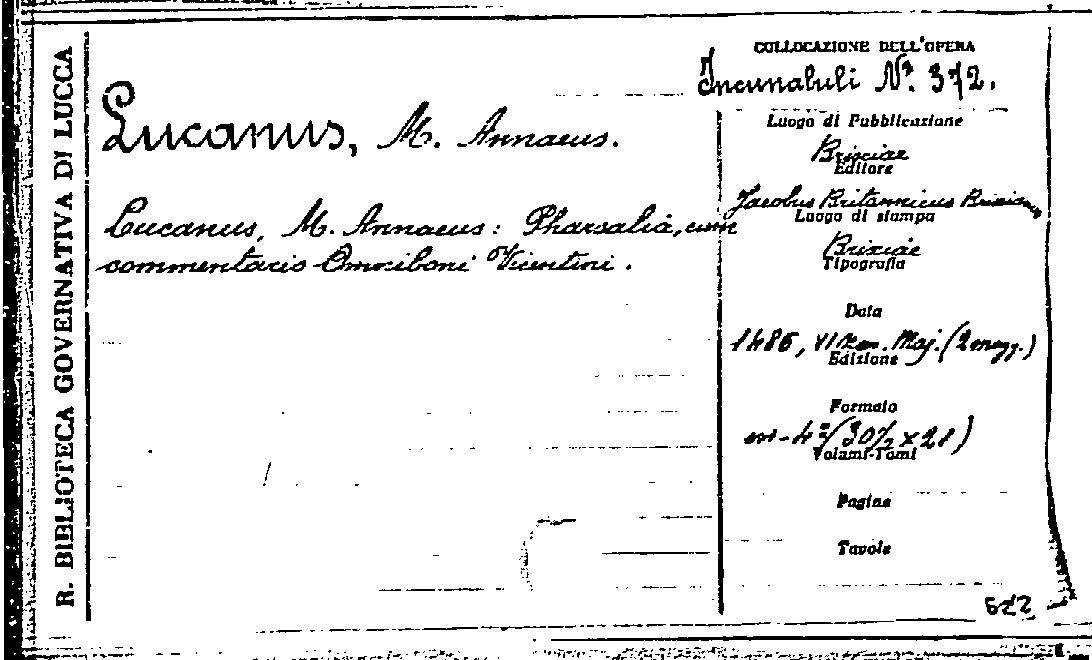 R. BIBLIOTECA GOVERNATIVA DI LUCCA
Lucanus, M. Annaeus.
Lucanus, M. Annaeus: Pharsalia, cum
commentariis Omniboni Vicentini.
COLLOCAZIONE DELL'OPERA
Incunabuli Nº. 372.
Luogo di Pubblicazione
Brixiae
Editore
Jacobus Britannicus Brixianus
Luogo di stampa
Brixiae
Tipografia
Data
1486, VI Maj. (2 magg.)
Edizione
Formato
in-4º (30½ x 21)
Volami-Tomi
Pagine
Tavole